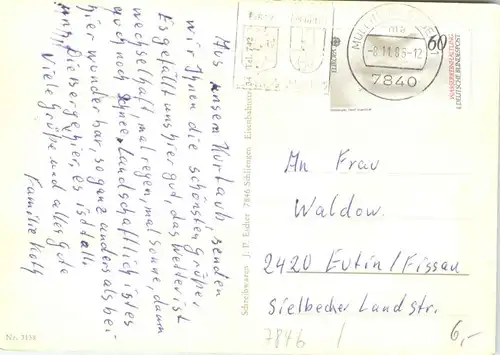 Aus unsem Kurlaub, senden
wir Ihnen die schönsten Grüße,
Es gefällt uns hier gut, das Wetter ist
wechselhaft, mal regen, mal Sonne, dann
auch noch Schnee, Landschaftlich ist es
hier wunderbar, so ganz anders als bei
uns, Die Berge hier, es ist all.
Viele Grüße und alles gute
Familie
Nr. 3138
Schreibwaren J. P. Eicher 7846 Schliengen Eisenbahnstr.
7840
60
EUROPA
DEUTSCHE BUNDESPOST
An Frau
Waldow.
2420 Eutin/Fissau
Sielbecher Landstr.
7846 /
6,-